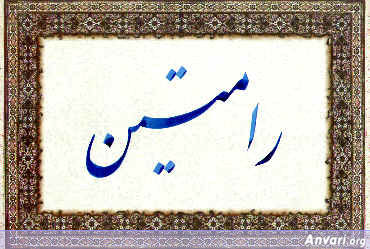 رامتین
Anvari.org